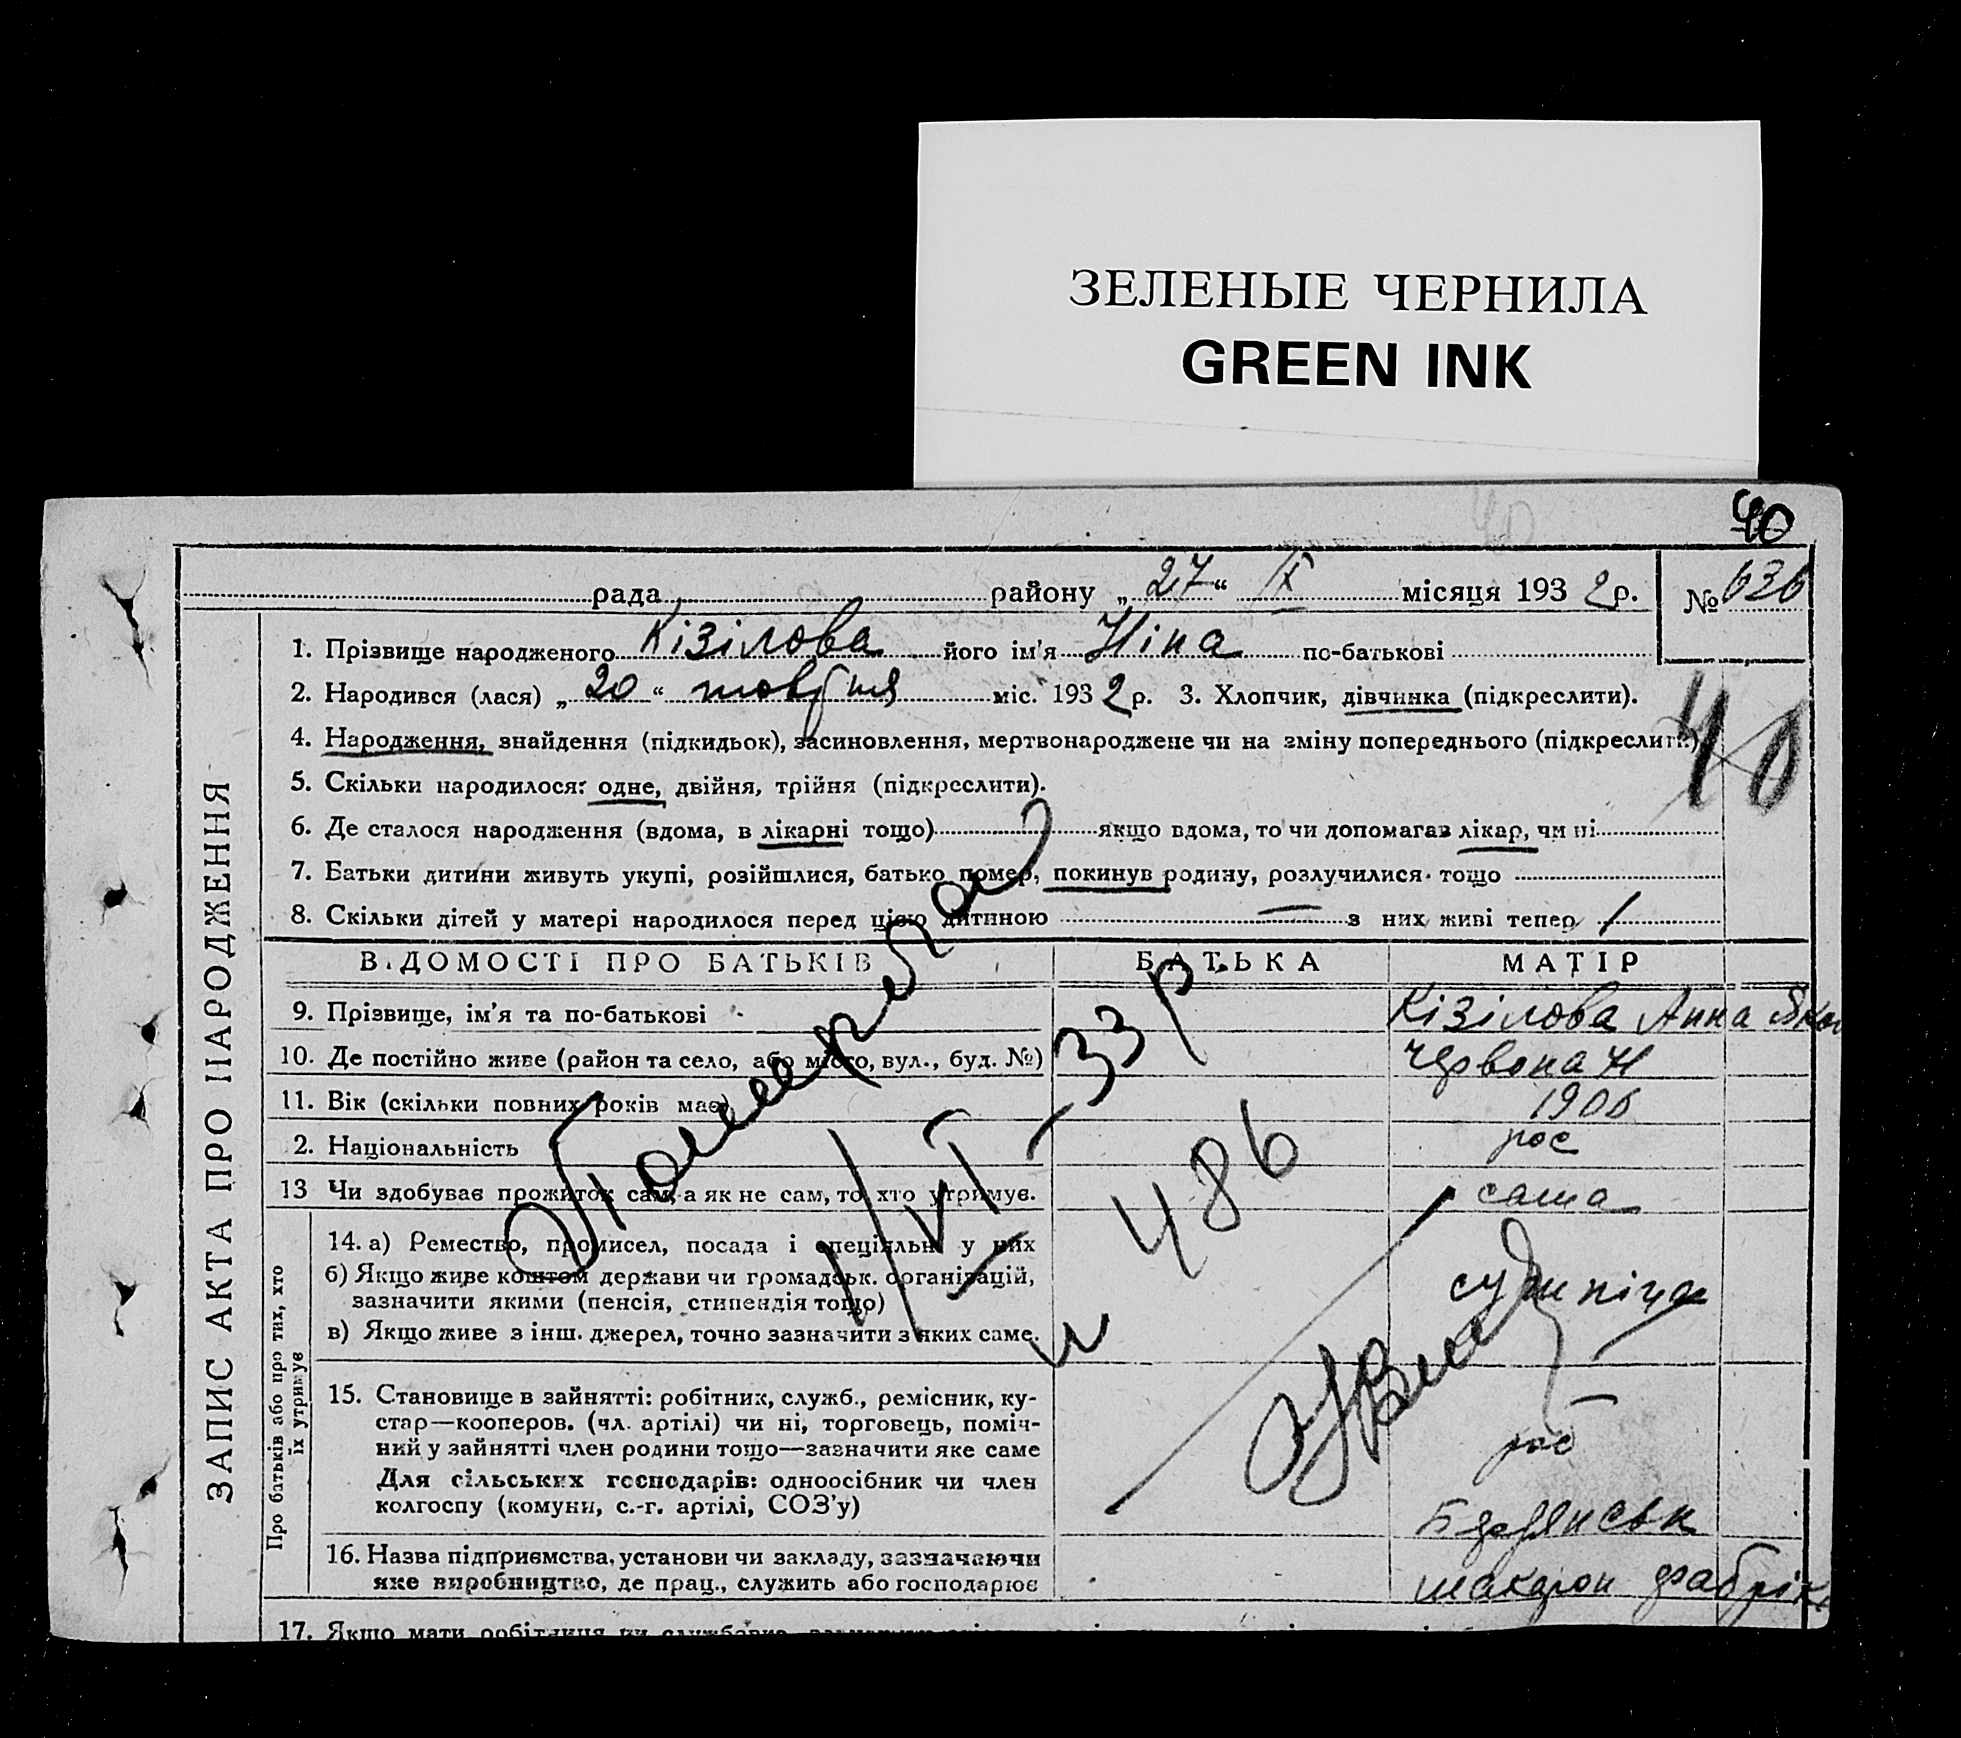 ЗЕЛЕНЫЕ ЧЕРНИЛА
GREEN INK
40
рада района району „27“ IX місяця 1932 р. № 636
1. Прізвище народженого Кізілова його ім'я Ніна по-батькові
2. Народився (лася) „20“ жовтня міс. 1932 р. 3. Хлопчик, дівчинка (підкреслити).
40
4. Народження, знайдення (підкидьок), засиновлення, мертвонароджене чи на зміну попереднього (підкреслити)
5. Скільки народилося: одне, двійня, трійня (підкреслити).
6. Де сталося народження (вдома, в лікарні тощо) якщо вдома, то чи допомагав лікар, чи ні
7. Батьки дитини живуть укупі, розійшлися, батько помер, покинув родину, розлучилися тощо
8. Скільки дітей у матері народилося перед цією дитиною — з них живі тепер 1
ЗАПИС АКТА ПРО НАРОДЖЕННЯ
ВІДОМОСТІ ПРО БАТЬКІВ БАТЬКА МАТІР
9. Прізвище, ім'я та по-батькові Кізілова Анна Яков
10. Де постійно живе (район та село, або місто, вул., буд. №) Червона Н
11. Вік (скільки повних років має) 1906
2. Національність рос
13 Чи здобуває прожиток сам, а як не сам, то хто утримує. сама
Про батьків або про тих, хто їх утримує
14. а) Ремество, промисел, посада і спеціяльн у них
б) Якщо живе коштом держави чи громадськ. організацій,
зазначити якими (пенсія, стипендія тощо)
в) Якщо живе з інш. джерел, точно зазначити з яких саме.
Померла
1/VI-33 р.
486
15. Становище в зайнятті: робітник, служб., ремісник, ку-
стар—кооперов. (чл. артілі) чи ні, торговець, поміч-
ний у зайнятті член родини тощо—зазначити яке саме
Для сільських господарів: одноосібник чи член
колгоспу (комуни, с.-г. артілі, СОЗ'у)
роб
Бердянськ
16. Назва підприємства, установи чи закладу, зазначаючи
яке виробництво, де прац., служить або господарює
макарон фабрік
17. Якщо мати робітниця чи службовка